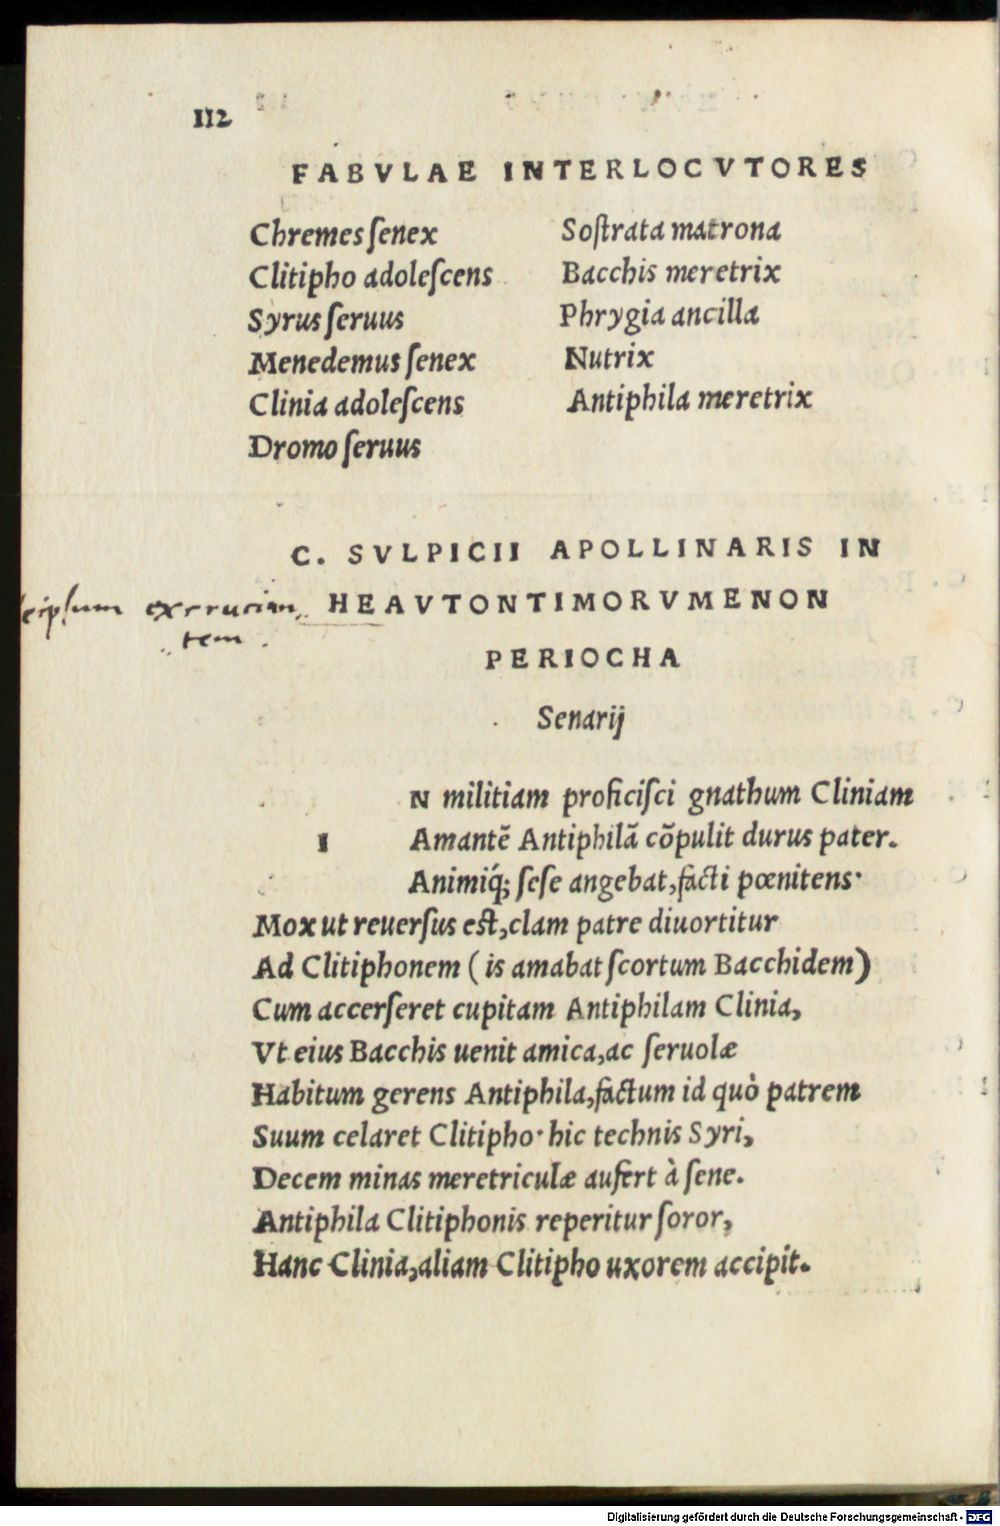 112
FABVLAE INTERLOCVTORES
Chremes ſenex
Clitipho adoleſcens
Syrus ſeruus
Menedemus ſenex
Clinia adoleſcens
Dromo ſeruus
Soſtrata matrona
Bacchis meretrix
Phrygia ancilla
Nutrix
Antiphila meretrix
C. SVLPICII APOLLINARIS IN
ſeipſum excrucian HEAVTONTIMORVMENON
tem.
PERIOCHA
Senarij
N militiam proficiſci gnathum Cliniam
I Amantẽ Antiphilã cõpulit durus pater.
Animiq́; ſeſe angebat, facti pœnitens·
Mox ut reuerſus eſt, clam patre diuortitur
Ad Clitiphonem (is amabat ſcortum Bacchidem)
Cum accerſeret cupitam Antiphilam Clinia,
Vt eius Bacchis uenit amica, ac ſeruolæ
Habitum gerens Antiphila, factum id quò patrem
Suum celaret Clitipho· hic technis Syri,
Decem minas meretriculæ aufert à ſene.
Antiphila Clitiphonis reperitur ſoror,
Hanc Clinia, aliam Clitipho uxorem accipit.
Digitalisierung gefördert durch die Deutsche Forschungsgemeinschaft - DFG